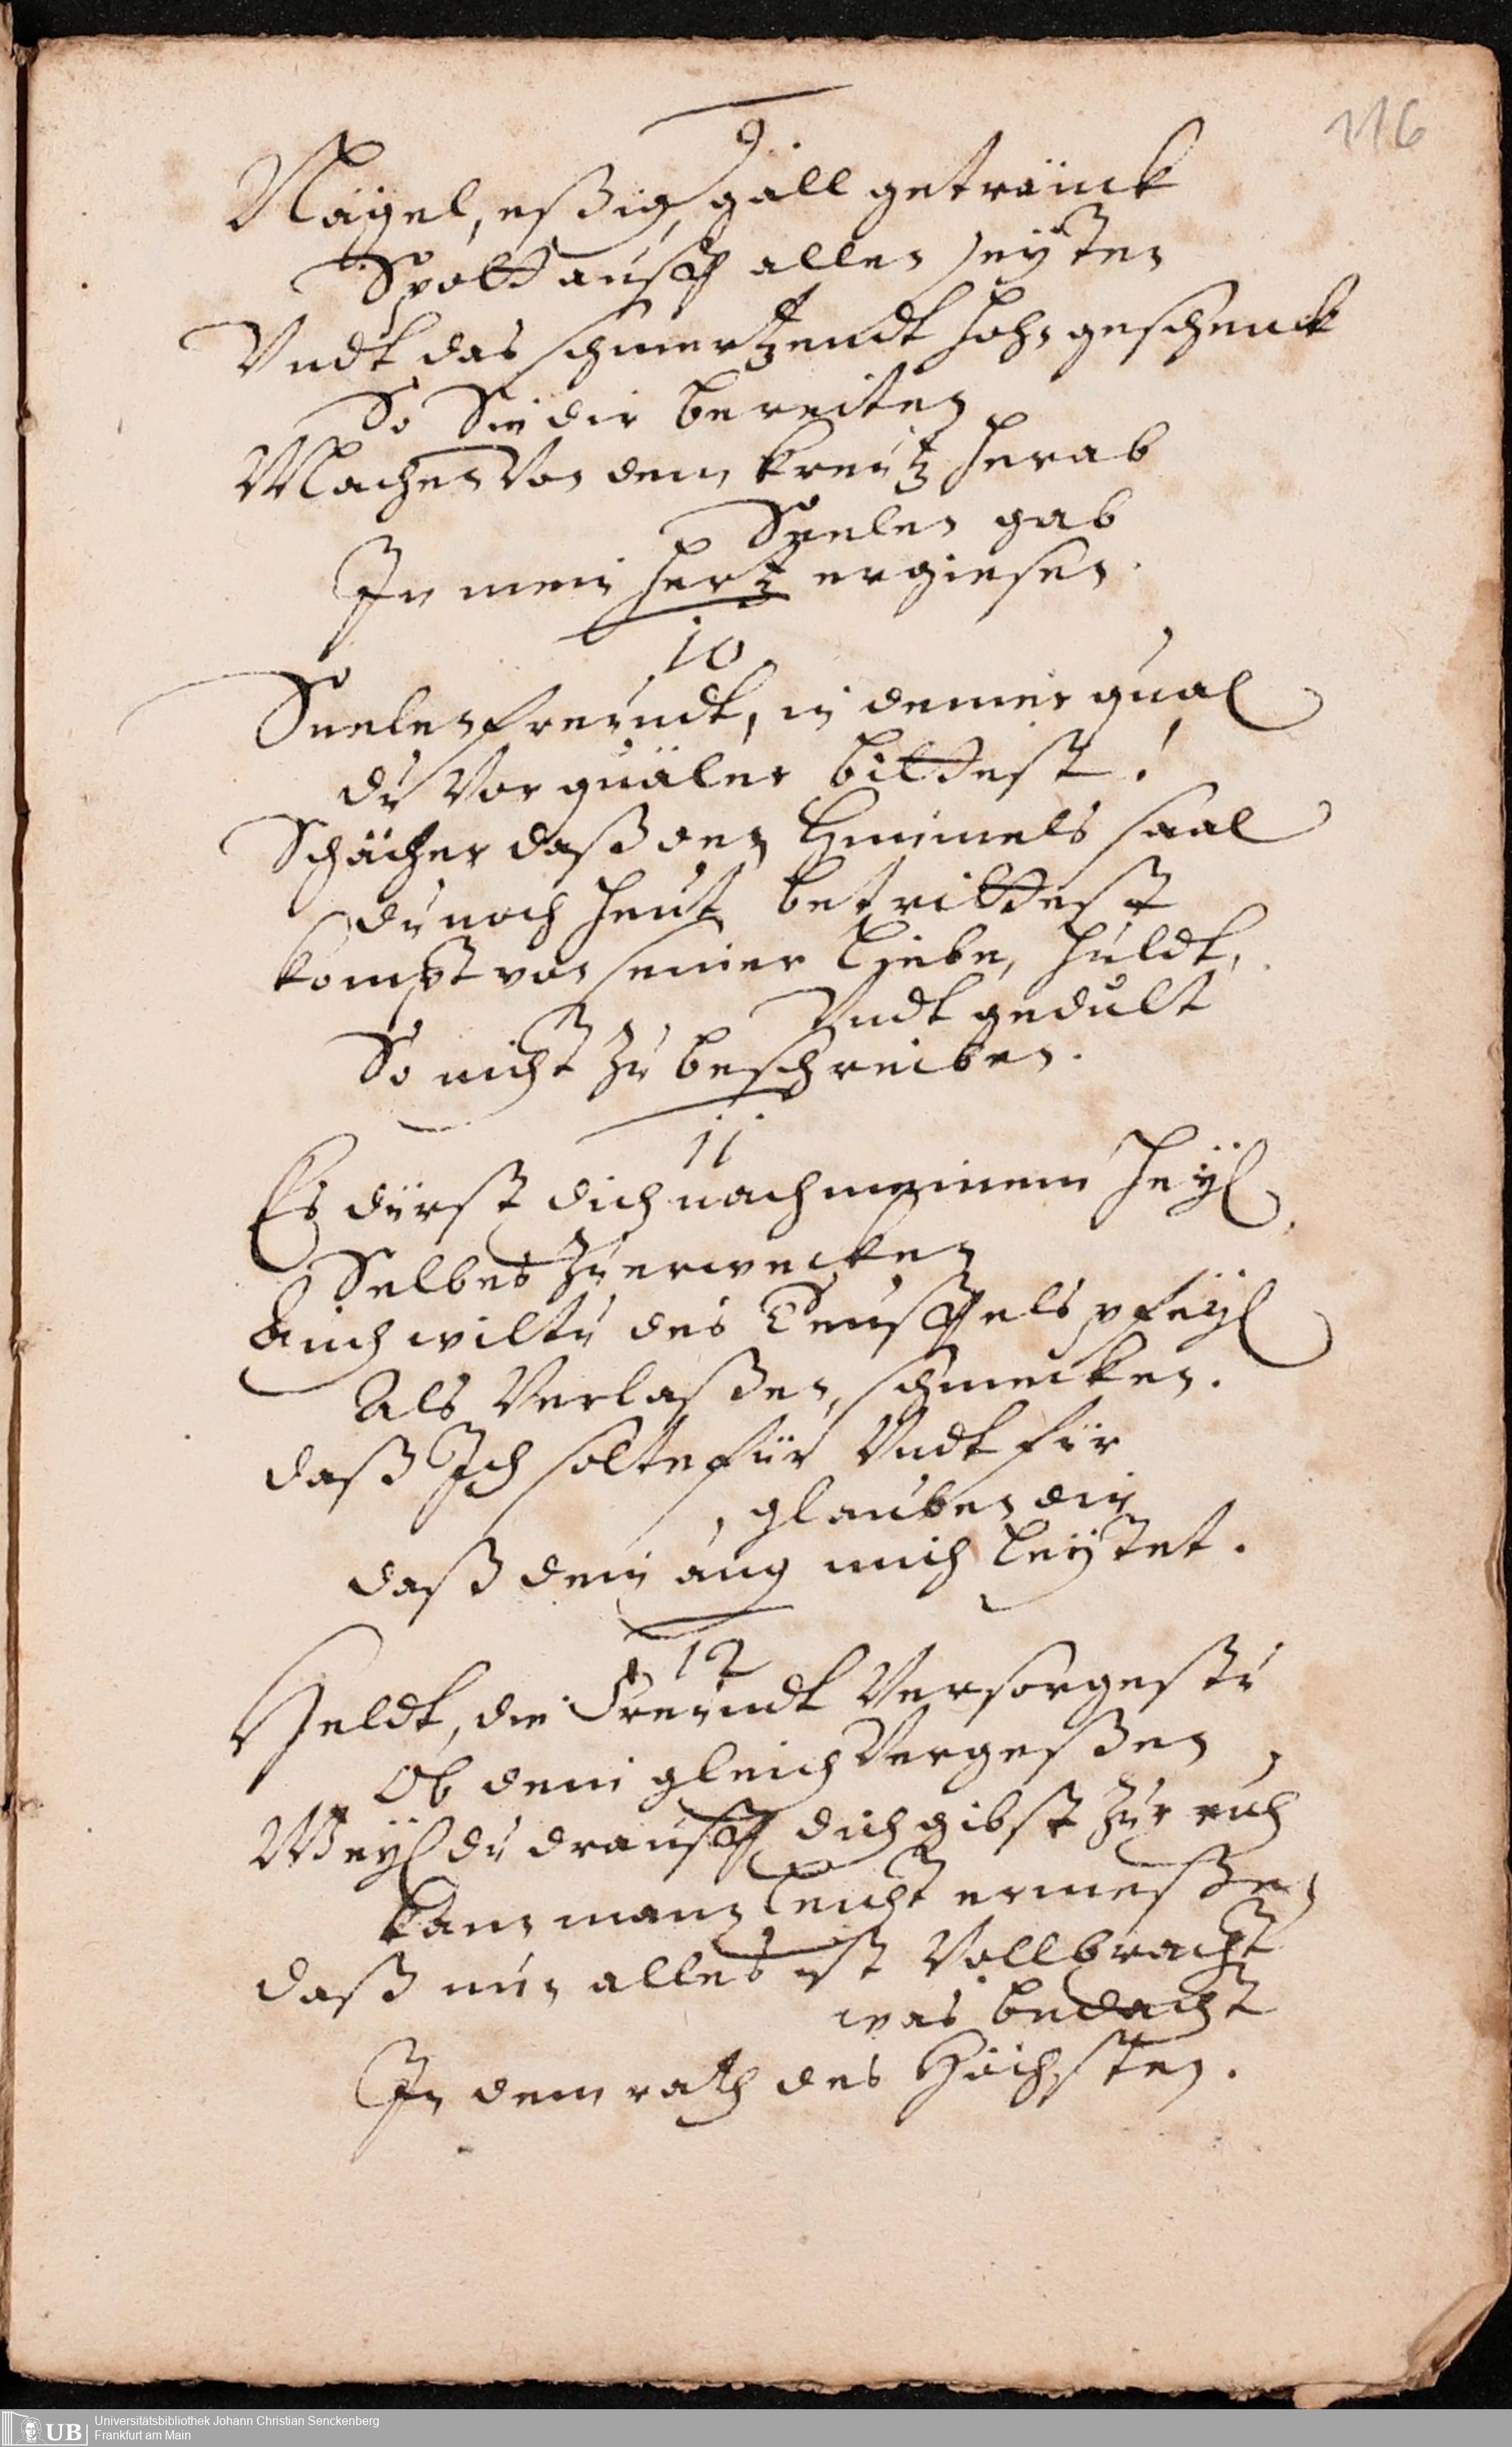 116
9
Nägel, eßig, gall getränck
Spott auff allen seyten
Vndt das schmertzendt hohn geschenck
So Sie dir bereiten
Machen Von dem kreutz herab
Seelen gab
In mein hertz ergiesen.
10
Seelenfreundt, in deiner qual
du Vor quäler bittest!
Schächer daß den Himmels saal
du noch heut betrittest
kompt von seiner Liebe, huldt,
Vndt gedult
So nicht zu beschreiben.
11
Es dürst dich nach meinem heyl
Selbes zu erwecken
Auch wiltu des Teuffels pfeyl
Als Verlaßen, schmecken.
daß Ich solte für Vndt für
glauben dir
daß dein aug mich leytet.
12
Heldt, die Freundt Versorgestu
Ob dein gleich Vergeßen,
Weyl du drauff dich gibst zur ruh
kan man leicht ermeßen
daß nun alles ist Vollbracht
was bedacht
In dem rath des Höchsten.
UB
Universitätsbibliothek Johann Christian Senckenberg
Frankfurt am Main